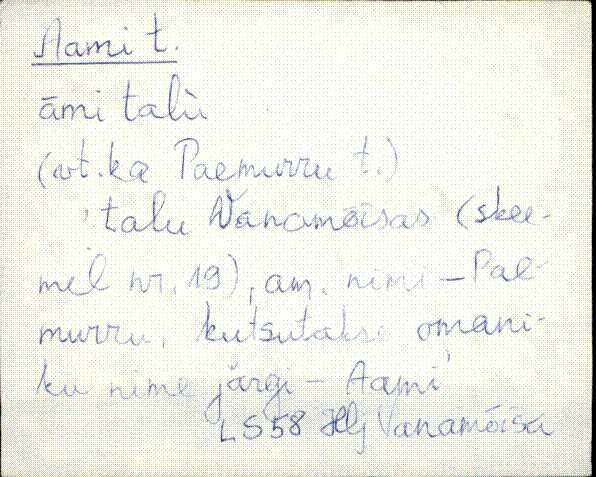 Aami t.
āmi talù
(vt. ka Paemurru t.)
talu Vanamõisas (skee-
mil nr. 19), am. nimi – Pae-
murru, kutsutakse omani-
ku nime järgi – Aami
LS58 Hlj Vanamõisa